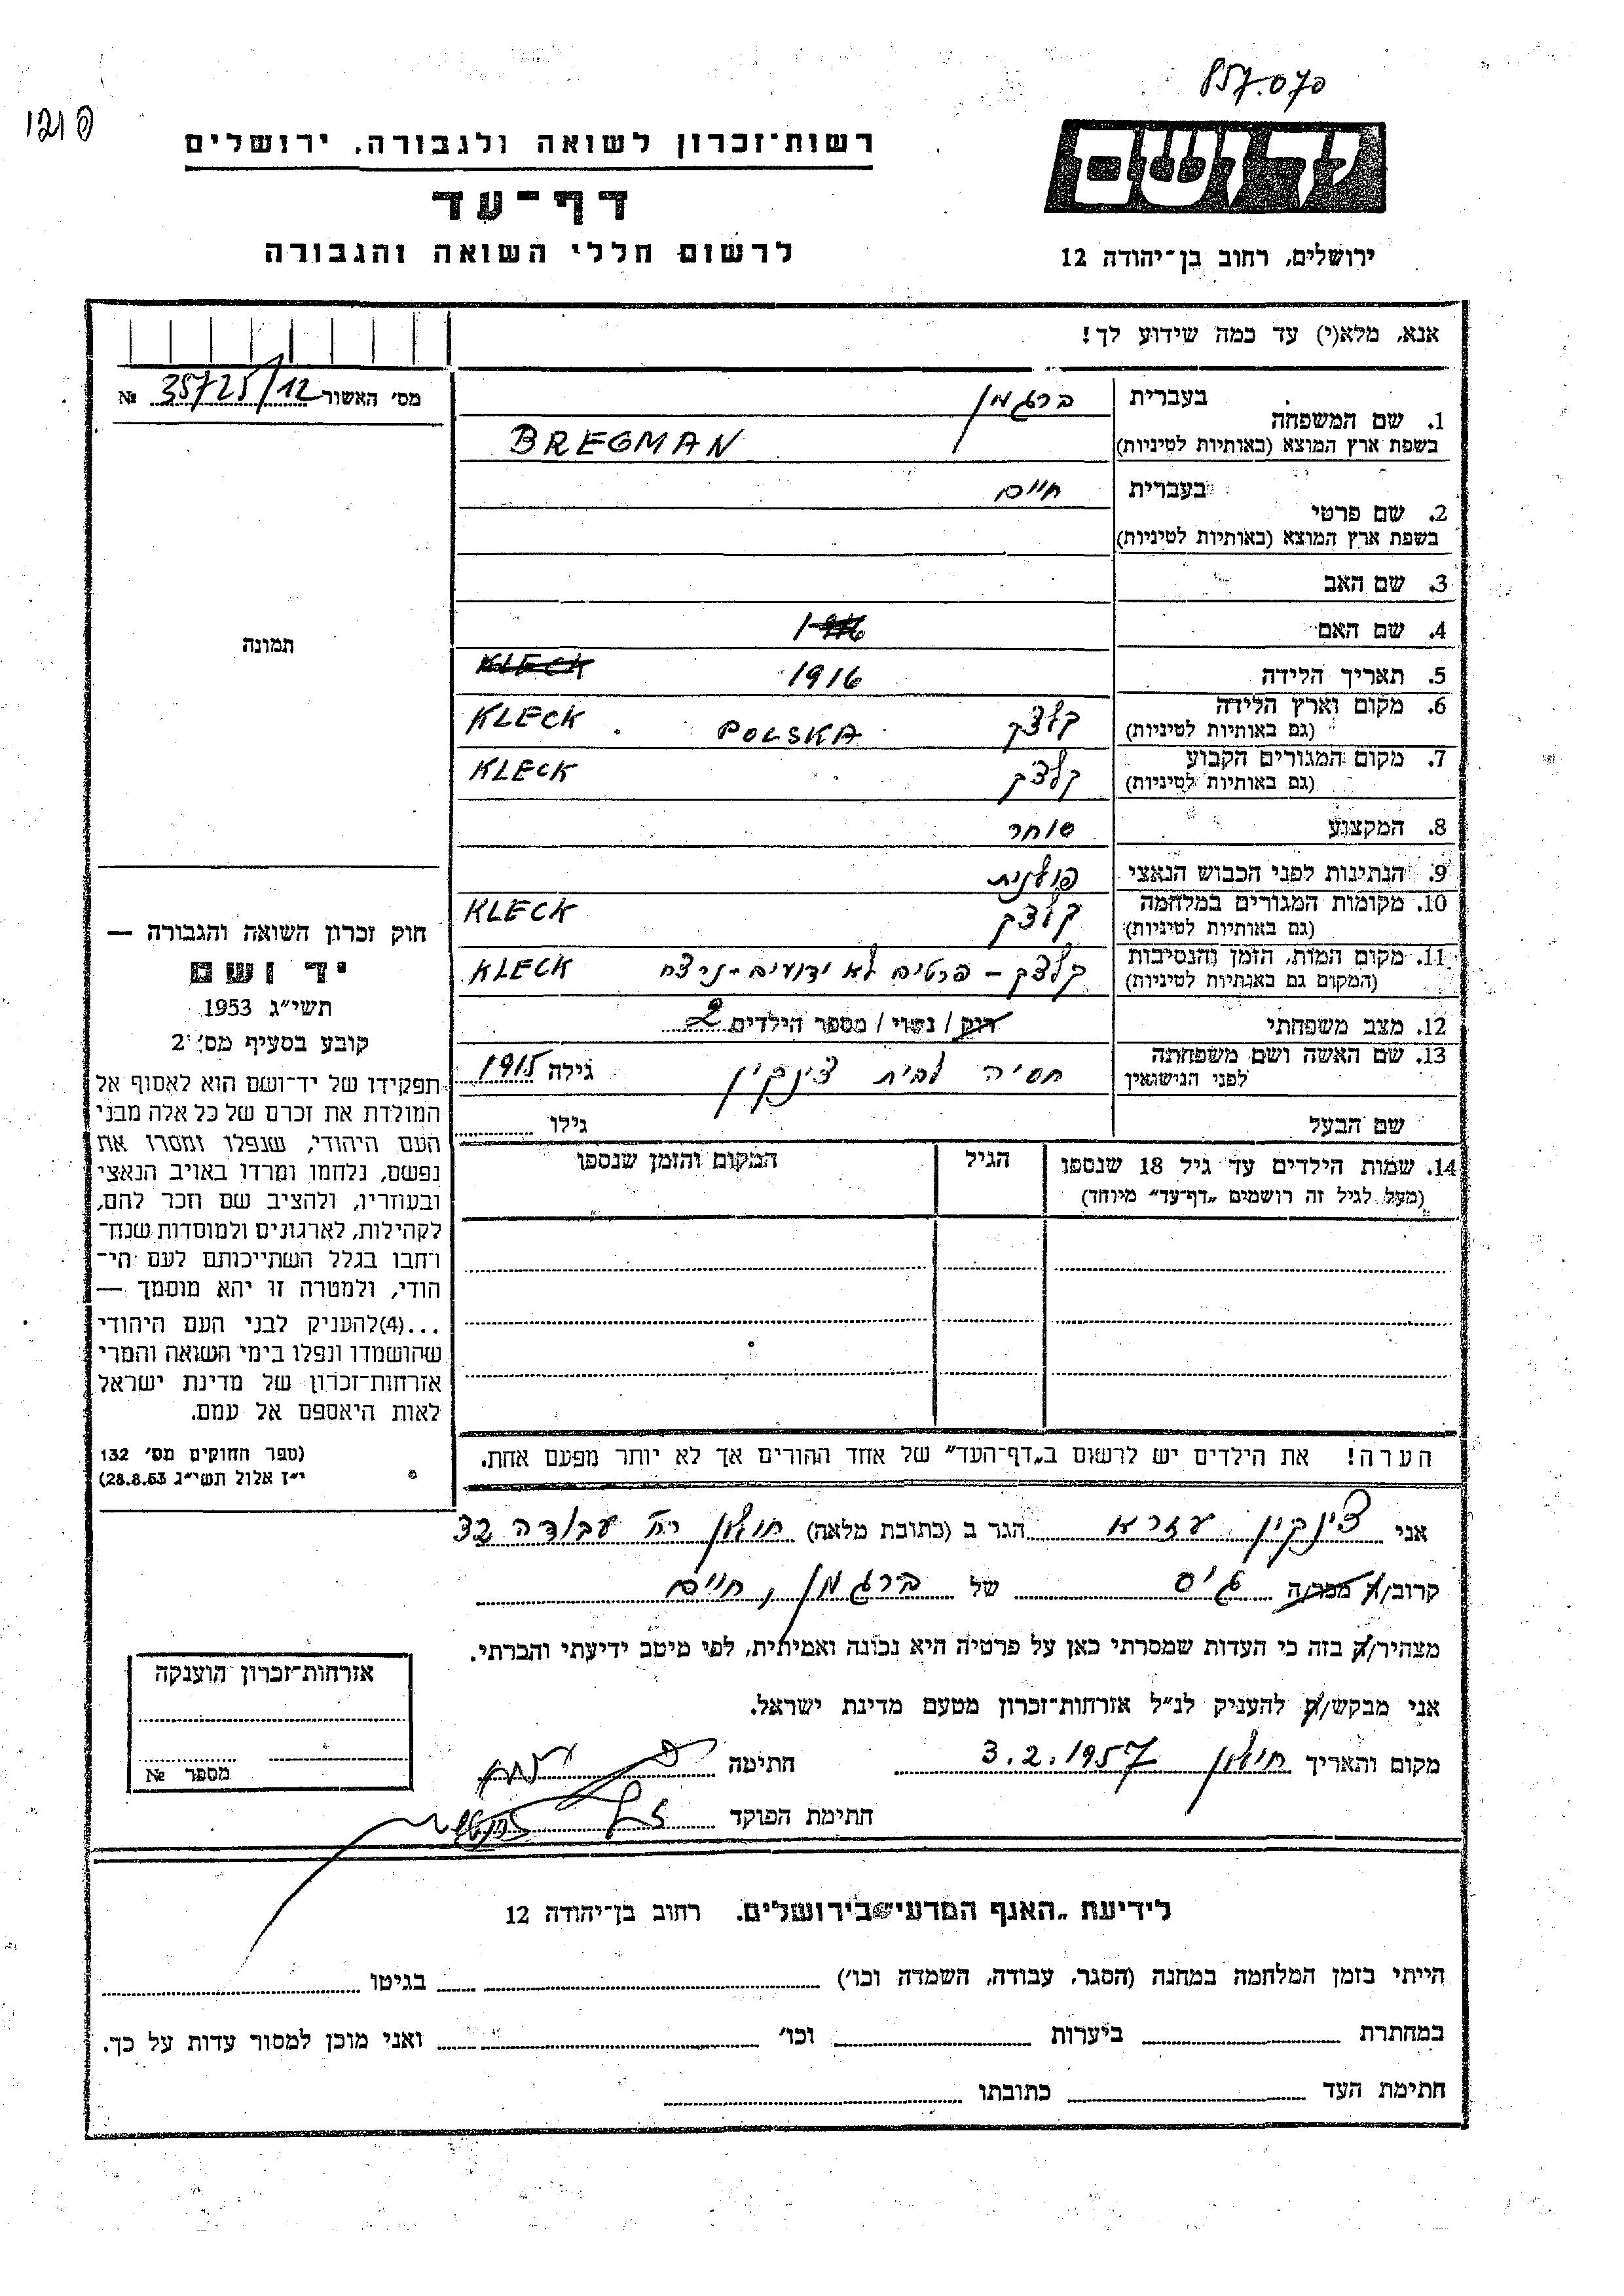 857.070
רשות־זכרון לשואה ולגבורה. ירושלים
דף־עד
לרשום חללי השואה והגבורה
יד ושם
ירושלים, רחוב בן־יהודה 12
אנא, מלא(י) עד כמה שידוע לך!
מס׳ האשור 35725/12 №
1. שם המשפחה
בעברית ברגמן
בשפת ארץ המוצא (באותיות לטיניות) BREGMAN
2. שם פרטי
בעברית חיים
בשפת ארץ המוצא (באותיות לטיניות)
3. שם האב
4. שם האם
5. תאריך הלידה 1916 KLECK
6. מקום וארץ הלידה (גם באותיות לטיניות) קלצק POLSKA KLECK
7. מקום המגורים הקבוע (גם באותיות לטיניות) קלצק KLECK
8. המקצוע סוחר
9. הנתינות לפני הכבוש הנאצי פולנית
10. מקומות המגורים במלחמה (גם באותיות לטיניות) קלצק KLECK
11. מקום המות, הזמן והנסיבות (המקום גם באותיות לטיניות) קלצק – פרטים לא ידועים - נרצח KLECK
12. מצב משפחתי רוק / נשוי / מספר הילדים 2
13. שם האשה ושם משפחתה לפני הנישואין חסיה לבית צינקין גילה 1915
שם הבעל גילו
14. שמות הילדים עד גיל 18 שנספו הגיל המקום והזמן שנספו
(מעל לגיל זה רושמים „דף־עד״ מיוחד)
תמונה
חוק זכרון השואה והגבורה —
יד ושם
תשי״ג 1953
קובע בסעיף מס׳ 2
תפקידו של יד־ושם הוא לאסוף אל
המולדת את זכרם של כל אלה מבני
העם היהודי, שנפלו ומסרו את
נפשם, נלחמו ומרדו באויב הנאצי
ובעוזריו, ולהציב שם וזכר להם,
לקהילות, לארגונים ולמוסדות שנח־
רחבו בגלל השתייכותם לעם הי־
הודי, ולמטרה זו יהא מוסמך —
...(4)להעניק לבני העם היהודי
שהושמדו ונפלו בימי השואה והמרי
אזרחות־זכרון של מדינת ישראל
לאות היאספם אל עמם.
(ספר החוקים מס׳ 132
י״ז אלול תשי״ג 28.8.53)
הערה! את הילדים יש לרשום ב„דף־העד״ של אחד ההורים אך לא יותר מפעם אחת.
אני צינקין עזרא הגר ב (כתובת מלאה) חולון רח׳ עבודה 32
קרוב/ה מכר/ה גיס של ברגמן חיים
מצהיר/ה בזה כי העדות שמסרתי כאן על פרטיה היא נכונה ואמיתית, לפי מיטב ידיעתי והכרתי.
אני מבקש/ת להעניק לנ״ל אזרחות־זכרון מטעם מדינת ישראל.
מקום ותאריך חולון 3.2.1957 חתימה
חתימת הפוקד
אזרחות־זכרון הוענקה
מספר №
לידיעת „האגף המדעי״ בירושלים. רחוב בן־יהודה 12
הייתי בזמן המלחמה במחנה (הסגר, עבודה, השמדה וכו׳) בגיטו
במחתרת ביערות וכו׳ ואני מוכן למסור עדות על כך.
חתימת העד כתובתו